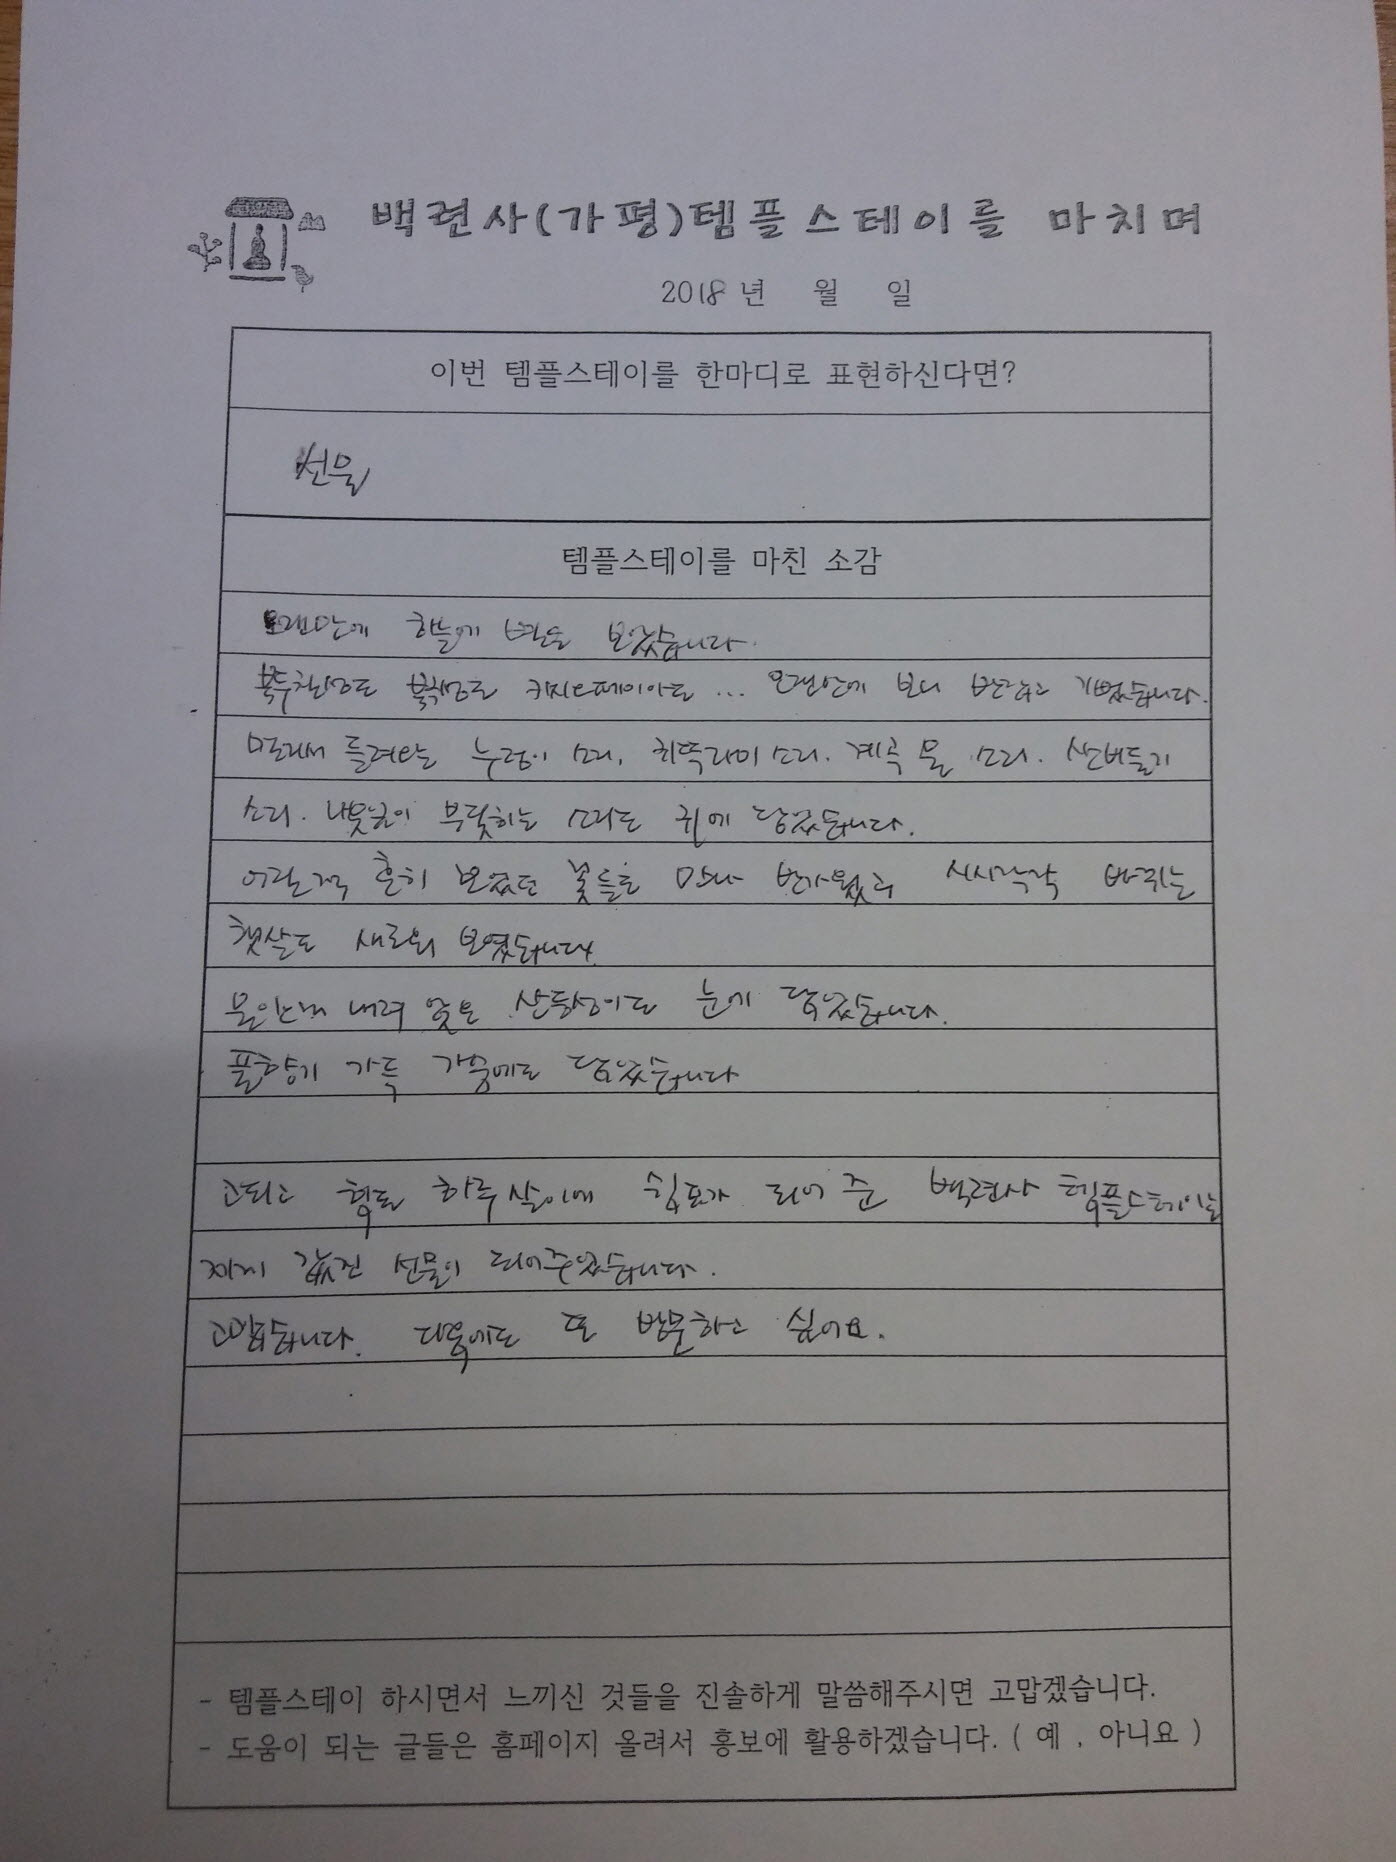 백련사(가평)템플스테이를 마치며
2018년 월 일
이번 템플스테이를 한마디로 표현하신다면?
선물
템플스테이를 마친 소감
오랜만에 하늘에 별을 보았습니다.
북두칠성도 북극성도 카시오페이아도 ... 오랜만에 보니 반갑고 기뻤습니다.
멀리서 들려오는 누렁이 소리, 귀뚜라미 소리. 계곡 물 소리. 산비둘기
소리. 나뭇잎이 부딪히는 소리도 귀에 담았습니다.
어릴적 흔히 보았던 꽃들을 만나 반가웠고 시시각각 바뀌는
햇살도 새로이 보였습니다.
물안개 내려 앉은 산등성이도 눈에 담았습니다.
풀향기 가득 가슴에도 담았습니다
고되고 힘든 하루살이에 쉼표가 되어 준 백련사 템플스테이는
제게 값진 선물이 되어주었습니다.
고맙습니다. 다음에도 또 방문하고 싶어요.
- 템플스테이 하시면서 느끼신 것들을 진솔하게 말씀해주시면 고맙겠습니다.
- 도움이 되는 글들은 홈페이지 올려서 홍보에 활용하겠습니다. ( 예 , 아니요 )